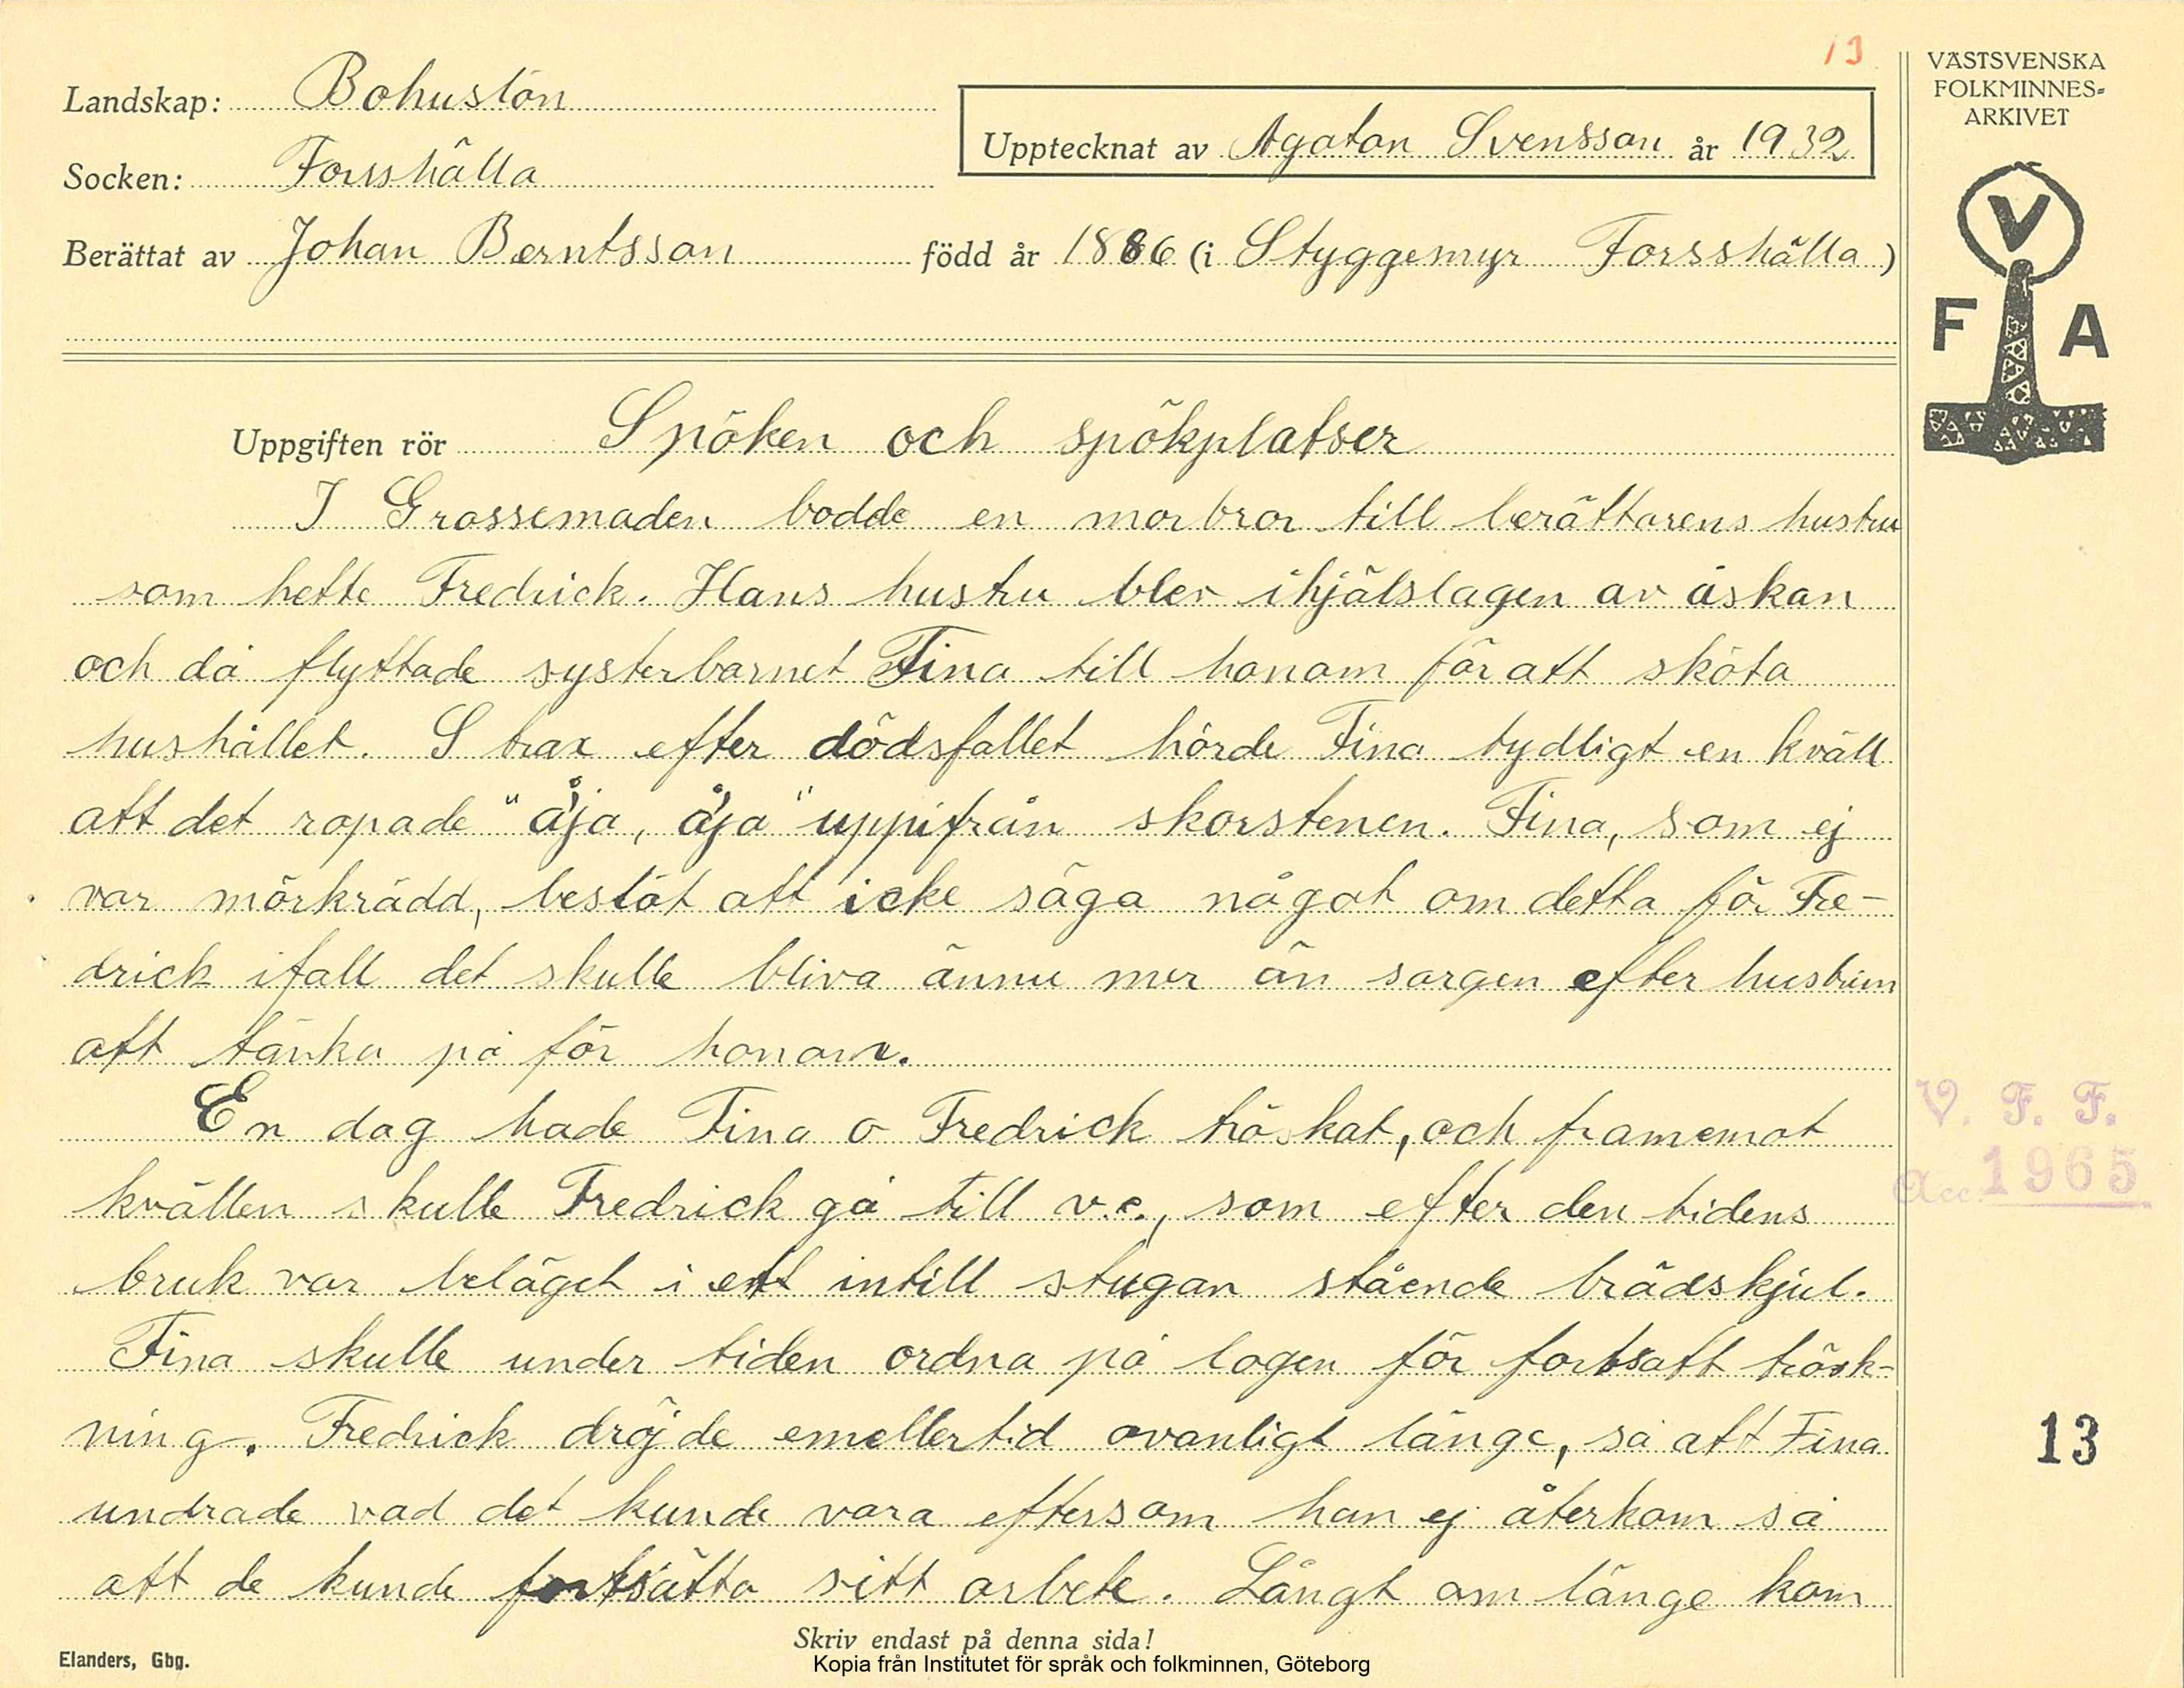 13
VÄSTSVENSKA
FOLKMINNES-
ARKIVET
Landskap: Bohuslän
Upptecknat av Agaton Svensson år 1932
Socken: Forsshälla
Berättat av Johan Berntsson född år 1886 (i Styggemyr Forsshälla)
V
F A
Uppgiften rör Spöken och spökplatser
I Grossemaden bodde en morbror till berättarens hustru
som hette Fredrick. Hans hustru blev ihjälslagen av åskan
och då flyttade systerbarnet Fina till honom för att sköta
hushållet. Strax efter dödsfallet hörde Fina tydligt en kväll
att det ropade "åja, åja" uppifrån skorstenen. Fina, som ej
var mörkrädd, beslöt att icke säga något om detta för Fre-
drick ifall det skulle bliva ännu mer än sorgen efter hustrun
att tänka på för honom.
En dag hade Fina o Fredrick tröskat, och framemot
kvällen skulle Fredrick gå till v.c., som efter den tidens
bruk var beläget i ett intill stugan stående brädskjul.
Fina skulle under tiden ordna på logen för fortsatt trösk-
ning. Fredrick dröjde emellertid ovanligt länge, så att Fina
undrade vad det kunde vara eftersom han ej återkom så
att de kunde fortsätta sitt arbete. Långt om länge kom
V. F. F.
Acc. 1965
13
Skriv endast på denna sida!
Elanders, Gbg.
Kopia från Institutet för språk och folkminnen, Göteborg